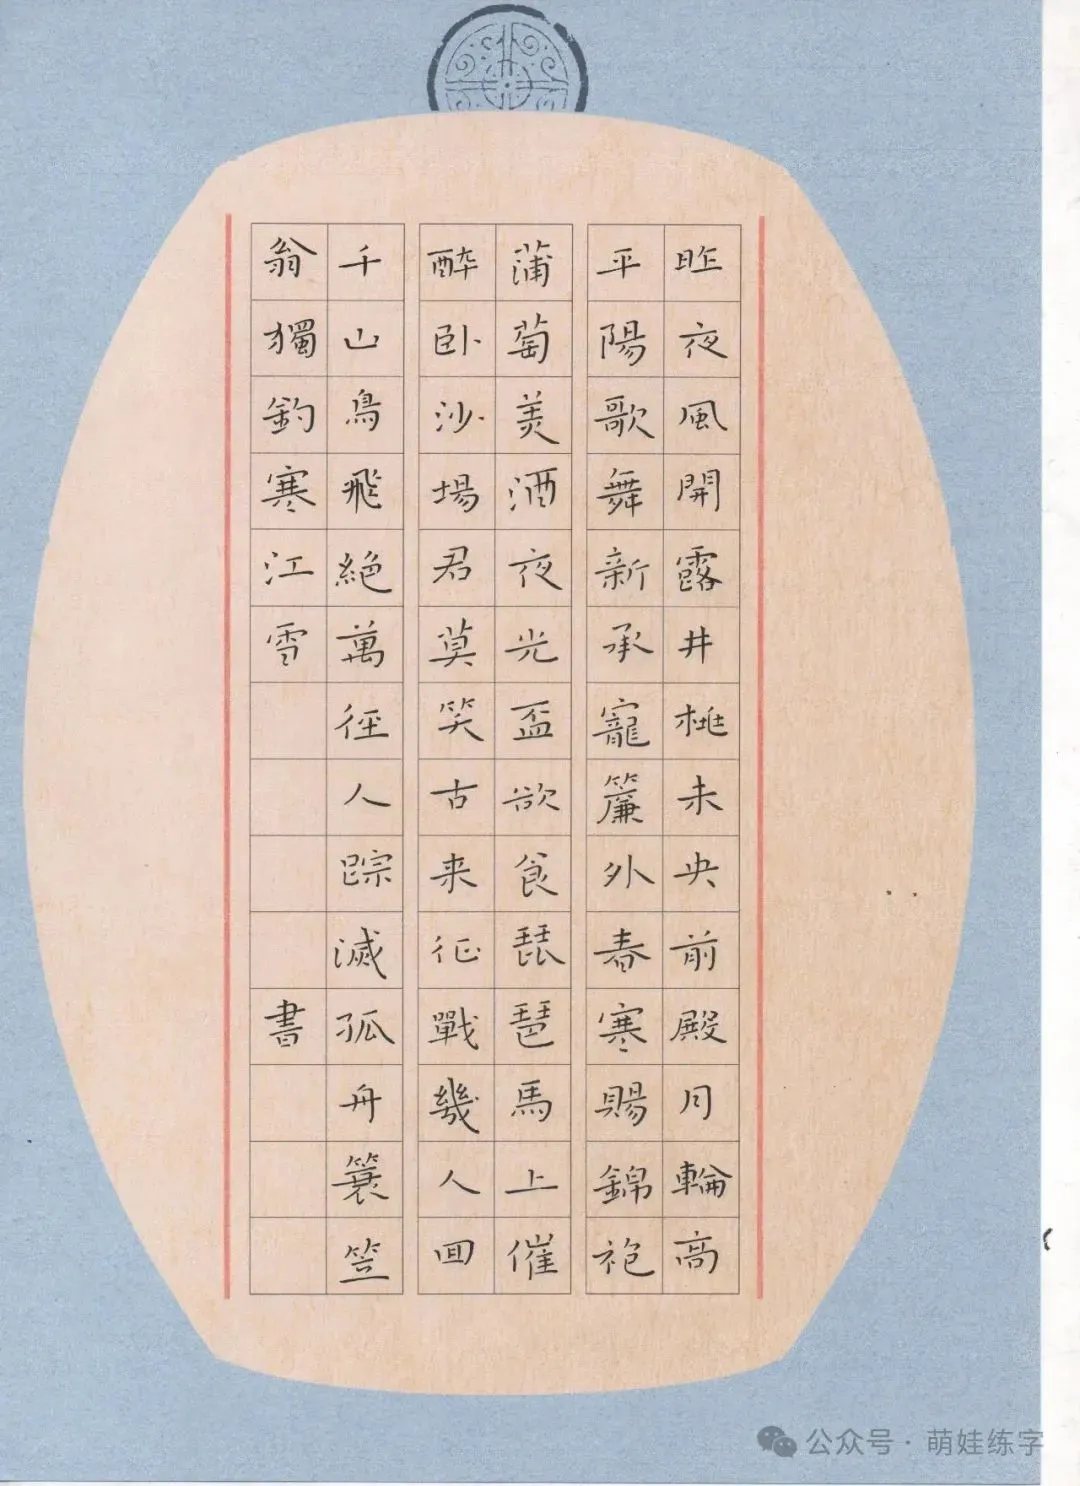 昨夜風開露井桃未央前殿月輪高
平陽歌舞新承寵簾外春寒賜錦袍
蒲萄美酒夜光盃欲飡琵琶馬上催
醉卧沙場君莫笑古来征戰幾人回
千山鳥飛絕萬徑人踪滅孤舟簑笠
翁獨釣寒江雪書
公众号·萌娃练字